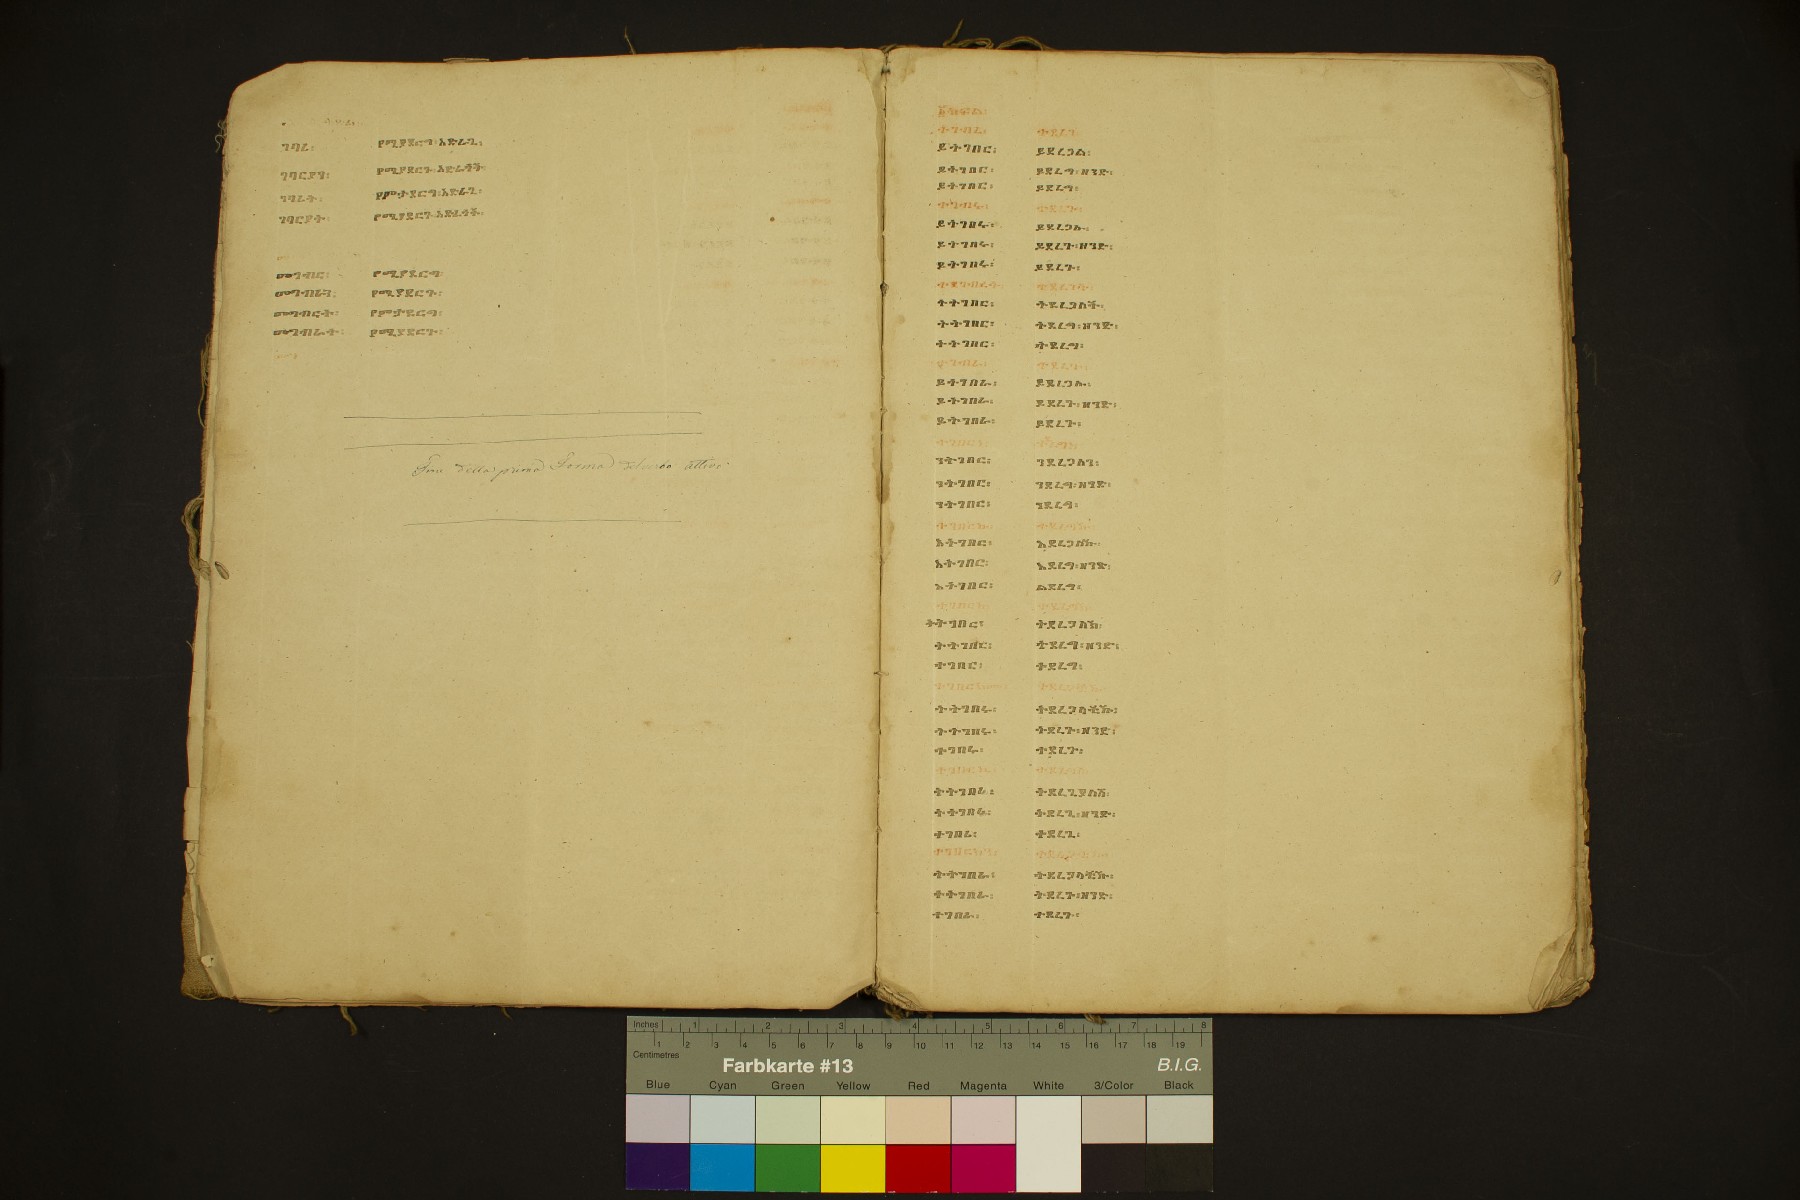 ገባሪ፡ የሚያደርግ፡አድራጊ፡
ገባርያን፡ የሚያደርጉ፡አድራጎች፡
ገባሪት፡ የምታደርግ፡አድራጊ፡
ገባርያት፡ የሚያደርጉ፡አድራጎች፡
መግብር፡ የሚያደርግ፡
መግብራን፡ የሚያደርጉ፡
መግብርት፡ የምታደርግ፡
መግብራት፡ የሚያደርጉ፡
Fine della prima Forma del verbo attivo
ተገብረ፡ ተደረገ፡
ይትገበር፡ ይደረጋል፡
ይትገበር፡ ይደረግ፡ዘንድ፡
ይትገበር፡ ይደረግ፡
ተገብሩ፡ ተደረጉ፡
ይትገበሩ፡ ይደረጋሉ፡
ይትገበሩ፡ ይደረጉ፡ዘንድ፡
ይትገበሩ፡ ይደረጉ፡
ተገብረት፡ ተደረገች፡
ትትገበር፡ ትደረጋለች፡
ትትገበር፡ ትደረግ፡ዘንድ፡
ትትገበር፡ ትደረግ፡
ተገብራ፡ ተደረጉ፡
ይትገበራ፡ ይደረጋሉ፡
ይትገበራ፡ ይደረጉ፡ዘንድ፡
ይትገበራ፡ ይደረጉ፡
ንትገበር፡ ንደረጋለን፡
ንትገበር፡ ንደረግ፡ዘንድ፡
ንትገበር፡ ንደረግ፡
እትገበር፡ እደረጋለኹ፡
እትገበር፡ እደረግ፡ዘንድ፡
እትገበር፡ ልደረግ፡
ትትገበር፡ ትደረጋለኽ፡
ትትገበር፡ ትደረግ፡ዘንድ፡
ተገበር፡ ተደረግ፡
ትትገበሩ፡ ትደረጋላቺኹ፡
ትትገበሩ፡ ትደረጉ፡ዘንድ፡
ተገበሩ፡ ተደረጉ፡
ትትገበሪ፡ ትደረጊያለሽ፡
ትትገበሪ፡ ትደረጊ፡ዘንድ፡
ተገበሪ፡ ተደረጊ፡
ትትገበራ፡ ትደረጋላቺኹ፡
ትትገበራ፡ ትደረጉ፡ዘንድ፡
ተገበራ፡ ተደረጉ፡
Inches 1 2 3 4 5 6 7 8
Centimetres 1 2 3 4 5 6 7 8 9 10 11 12 13 14 15 16 17 18 19
Farbkarte #13 B.I.G.
Blue Cyan Green Yellow Red Magenta White 3/Color Black